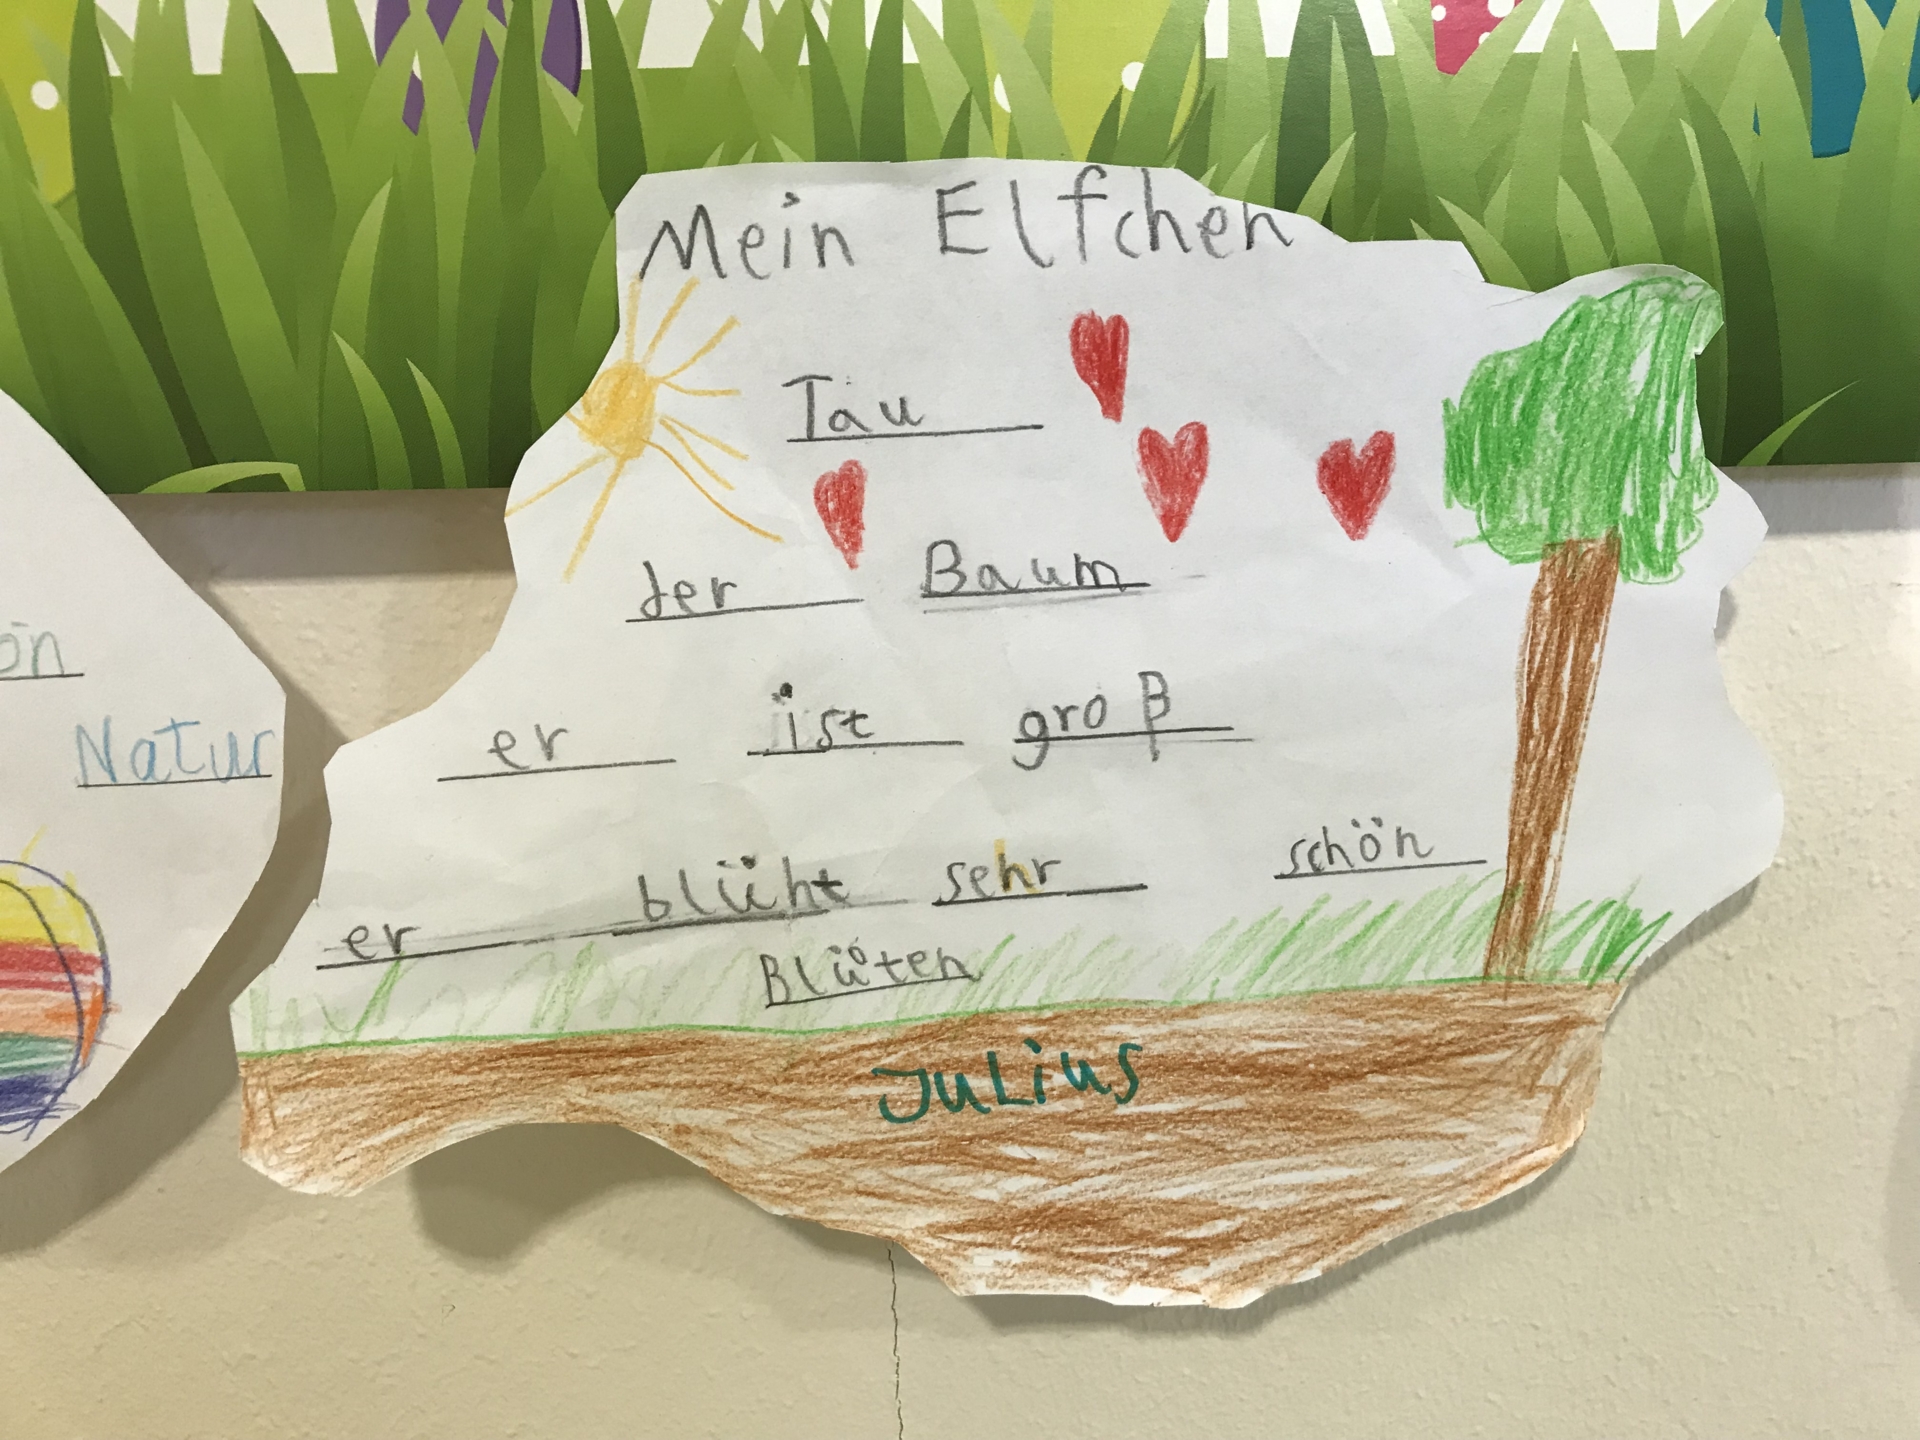 Mein Elfchen
Tau
der Baum
er ist groß
er blüht sehr schön
Blüten
Julius
Natur